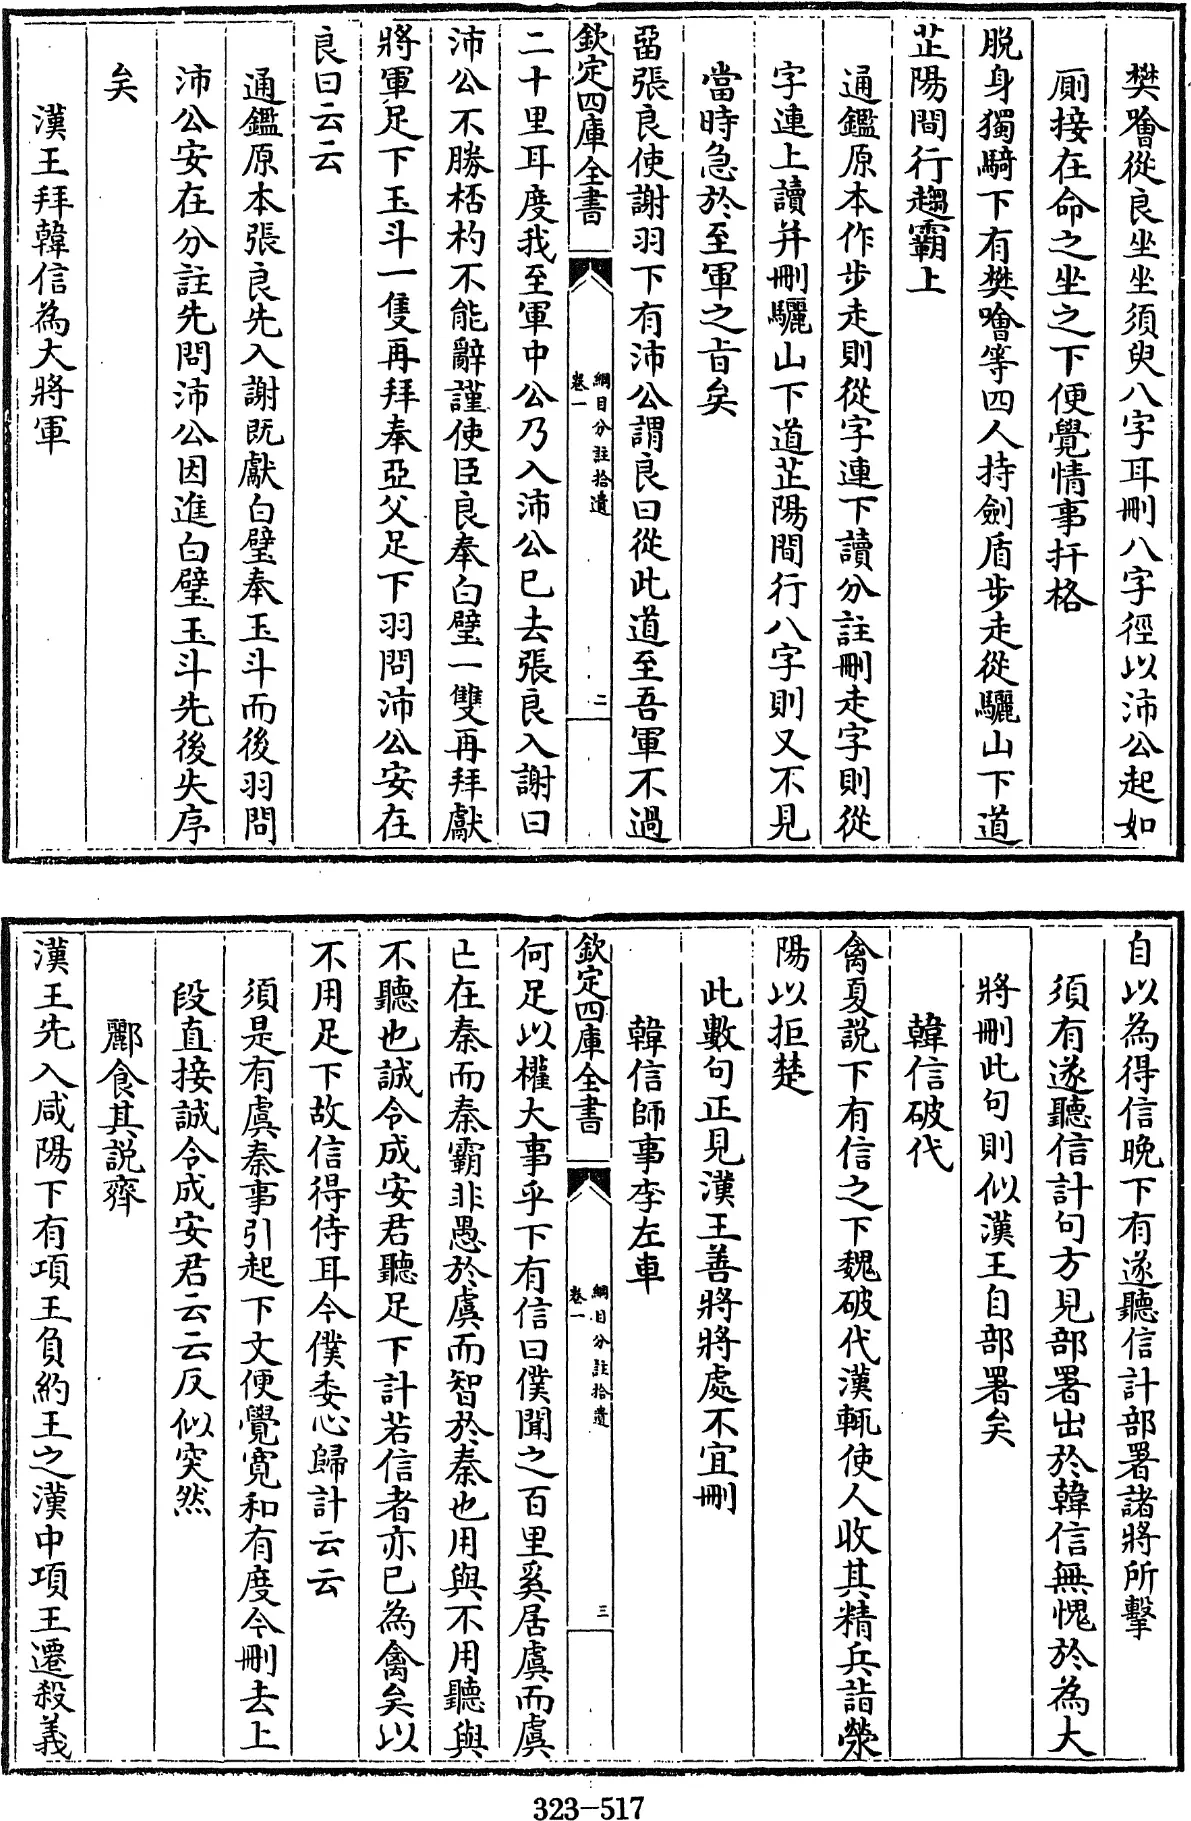 樊噲從良坐坐須臾八字耳刪八字徑以沛公起如
厠接在命之坐之下便覺情事扞格
脱身獨騎下有樊噲等四人持劍盾步走從驪山下道
芷陽間行趨霸上
通鑑原本作步走則從字連下讀分註刪走字則從
字連上讀并刪驪山下道芷陽間行八字則又不見
當時急於至軍之㫖矣
畱張良使謝羽下有沛公謂良曰從此道至吾軍不過
欽定四庫全書
綱目分註拾遺
卷一
二
二十里耳度我至軍中公乃入沛公已去張良入謝曰
沛公不勝桮杓不能辭謹使臣良奉白璧一雙再拜獻
將軍足下玉斗一隻再拜奉亞父足下羽問沛公安在
良曰云云
通鑑原本張良先入謝既獻白璧奉玉斗而後羽問
沛公安在分註先問沛公因進白璧玉斗先後失序
矣
漢王拜韓信為大將軍
自以為得信晚下有遂聽信計部署諸將所擊
須有遂聽信計句方見部署出於韓信無愧於為大
將刪此句則似漢王自部署矣
韓信破代
禽夏説下有信之下魏破代漢輒使人收其精兵詣滎
陽以拒楚
此數句正見漢王善將將處不宜刪
韓信師事李左車
欽定四庫全書
綱目分註拾遺
卷一
三
何足以權大事乎下有信曰僕聞之百里奚居虞而虞
亡在秦而秦霸非愚於虞而智於秦也用與不用聽與
不聽也誠令成安君聽足下計若信者亦已為禽矣以
不用足下故信得侍耳今僕委心歸計云云
須是有虞秦事引起下文便覺寛和有度今刪去上
段直接誠令成安君云云反似突然
酈食其説齊
漢王先入咸陽下有項王負約王之漢中項王遷殺義
323-517